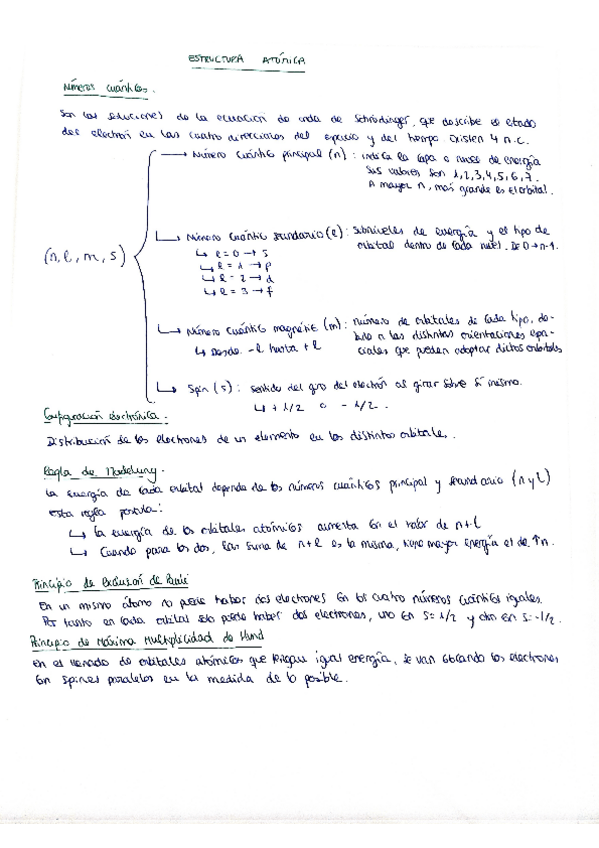 ESTRUCTURA ATÓMICA
Números cuánticos.
Son las soluciones de la ecuación de onda de Schrödinger, que describe el estado
del electrón en las cuatro direcciones del espacio y del tiempo. Existen 4 n.c.
(n, l, m, s)
→ Número cuántico principal (n): indica la capa o nivel de energía
Sus valores son 1,2,3,4,5,6,7.
A mayor n, más grande es el orbital.
↳ Número cuántico secundario (l): subniveles de energía y el tipo de
orbital dentro de cada nivel. De 0→n-1.
↳ l=0 → s
↳ l=1 → p
↳ l=2 → d
↳ l=3 → f
↳ Número cuántico magnético (m): número de orbitales de cada tipo, de-
bido a las distintas orientaciones espa-
ciales que pueden adoptar dichos orbitales
↳ Desde -l hasta +l
↳ Spin (s): sentido del giro del electrón al girar sobre sí mismo.
↳ +1/2 o -1/2.
Configuración electrónica.
Distribución de los electrones de un elemento en los distintos orbitales.
Regla de Madelung.
La energía de cada orbital depende de los números cuánticos principal y secundario (n y l)
esta regla postula:
↳ La energía de los orbitales atómicos aumenta con el valor de n+l
↳ Cuando para los dos, la suma de n+l es la misma, tiene mayor energía el de ↑n.
Principio de Exclusión de Pauli
En un mismo átomo no puede haber dos electrones con los cuatro números cuánticos iguales.
Por tanto en cada orbital solo puede haber dos electrones, uno con s=1/2 y otro con s=-1/2.
Principio de Máxima Multiplicidad de Hund
En el llenado de orbitales atómicos que tengan igual energía, se van colocando los electrones
con spines paralelos en la medida de lo posible.